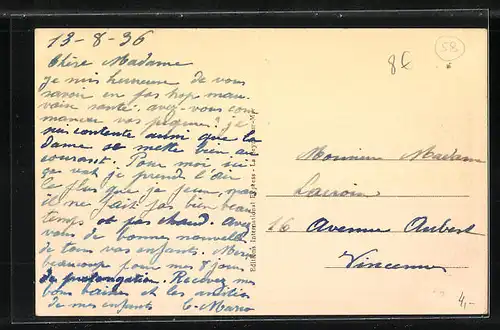 13-8-36
Chère Madame
je suis heureuse de vous
savoir en pas trop mau-
vaise santé. avez-vous com
mencer vos piqures? je
suis contente aussi que la
dame se mette bien au
courant. Pour moi ici
ça va et je prends l'air
le plus que je peux, mais
il ne fait pas bien beau
temps et pas chaud. Avez
vous de bonnes nouvelles
de tous vos enfants. Merci
beaucoup pour mes 8 jours
de prolongation. Recevez mes
bons baisers et les amitiés
de mes enfants
Edition International
Monsieur Madame
Lacroix
16 Avenue Aubert
Vincennes
86
58
4,-